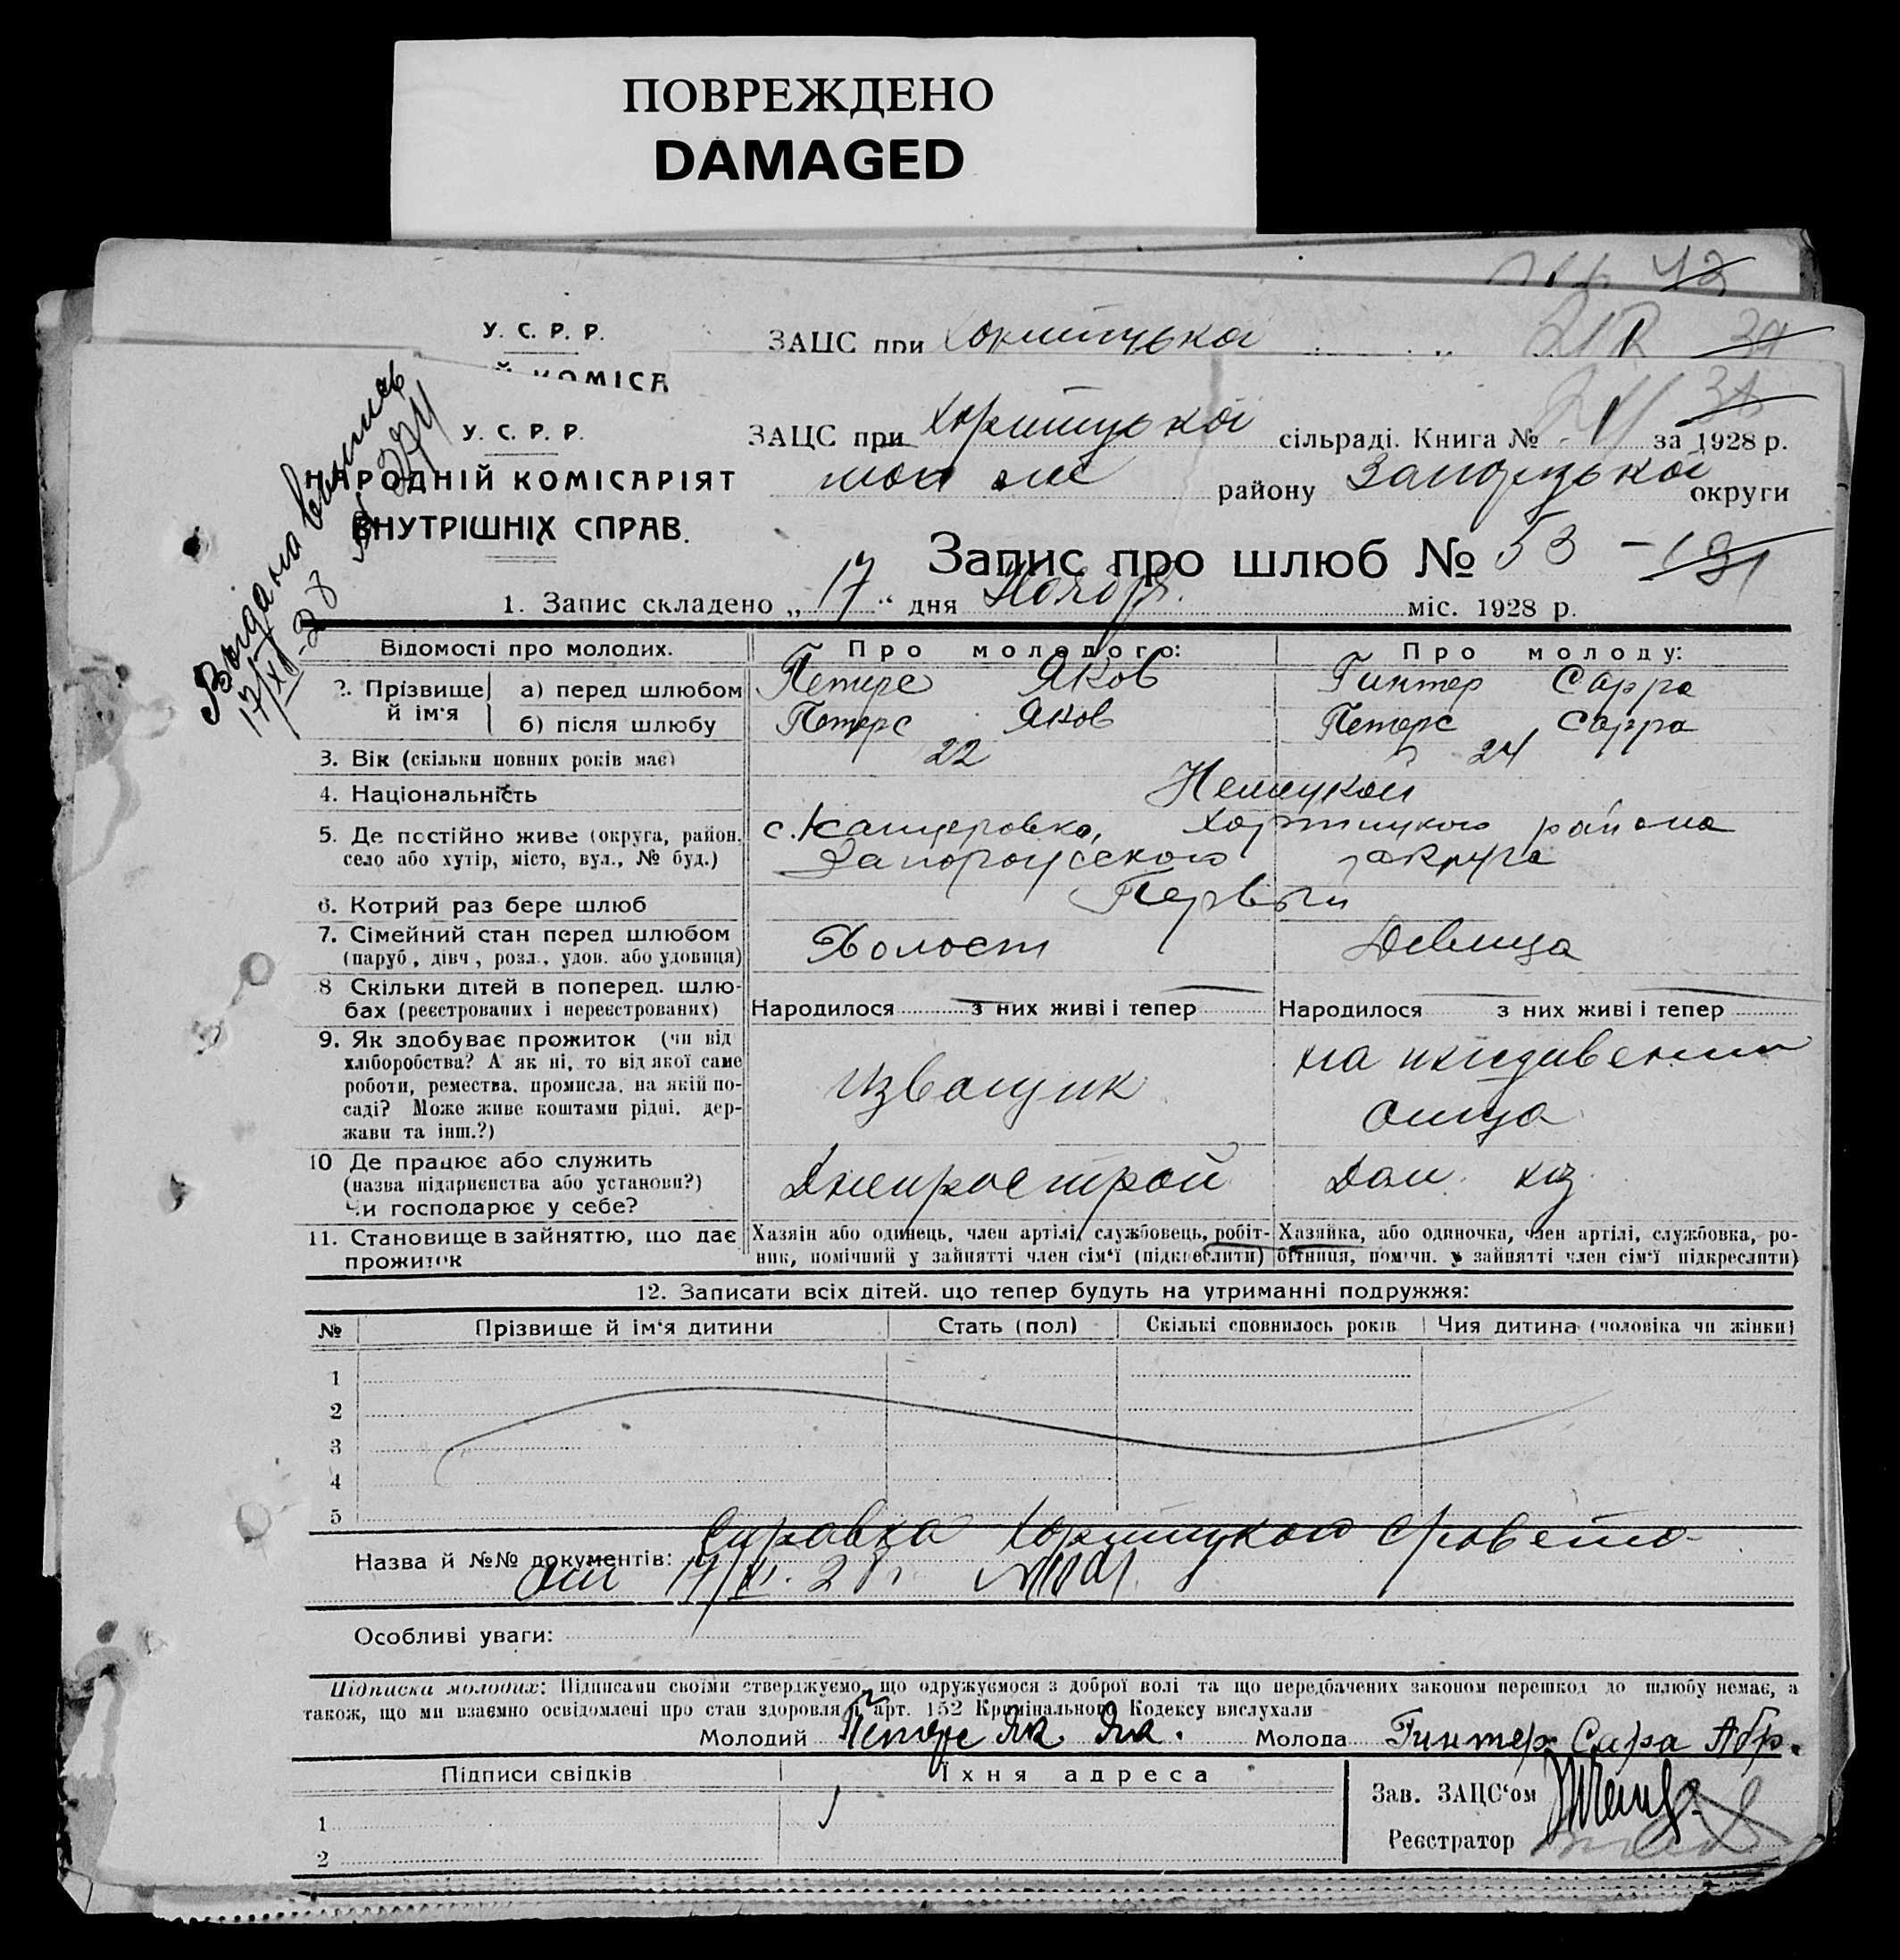 ПОВРЕЖДЕНО
DAMAGED
42
У. С. Р. Р.
ЗАЦС при Хортицькой
39
Й КОМІСА
38
У. С. Р. Р.
НАРОДНІЙ КОМІСАРІЯТ
ВНУТРІШНІХ СПРАВ.
Выдана выпись
17/XI-28
ЗАЦС при Хортицькой сільраді. Книга № 1 за 1928 р.
того же району Запорізької округи
Запис про шлюб № 53
1. Запис складено „ 17 “ дня Ноября міс. 1928 р.
Відомості про молодих.
Про молодого:
Про молоду:
2. Прізвище й ім'я
а) перед шлюбом
Петерс Яков
Гинтер Сарра
б) після шлюбу
Петерс Яков
Петерс Сарра
3. Вік (скільки повних років має)
22
24
4. Національність
Немецкой
5. Де постійно живе (округа, район, село або хутір, місто, вул., № буд.)
с. Канцеровка, Хортицкого района
Запорожского округа
6. Котрий раз бере шлюб
Первый
7. Сімейний стан перед шлюбом
(паруб., дівч., розл., удов. або удовиця)
Холост
Девица
8 Скільки дітей в поперед. шлю-
бах (реєстрованих і нереєстрованих)
Народилося з них живі і тепер
Народилося з них живі і тепер
9. Як здобуває прожиток (чи від
хліборобства? А як ні, то від якої саме
роботи, ремества, промисла, на якій по-
саді? Може живе коштами рідні, дер-
жави та інш.?)
Извощик
на иждивении
отца
10 Де працює або служить
(назва підприємства або установи?)
Чи господарює у себе?
Днепрострой
Дом. хоз.
11. Становище в зайняттю, що дає
прожиток
Хазяін або одинець, член артілі, службовець, робіт-
ник, помічний у зайнятті член сім'ї (підкреслити)
Хазяйка, або одиночка, член артілі, службовка, ро-
бітниця, помічн. у зайнятті член сім'ї підкреслити)
12. Записати всіх дітей. що тепер будуть на утриманні подружжя:
№ Прізвище й ім'я дитини Стать (пол) Скількі сповнилось років Чия дитина (чоловіка чи жінки)
1
2
3
4
5
Справка Хортицкого с/совета
Назва й №№ документів:
от 17/XI. 28 г.
Особливі уваги:
Підписка молодих: Підписами своїми стверджуємо, що одружуємося з доброї волі та що передбачених законом перешкод до шлюбу немає, а
також, що ми взаємно освідомлені про стан здоровля й арт. 152 Кримінального Кодексу вислухали
Молодий Петерс Як Як. Молода Гинтер Сара Абр.
Підписи свідків
Їхня адреса
1
2
Зав. ЗАЦС'ом
Реєстратор